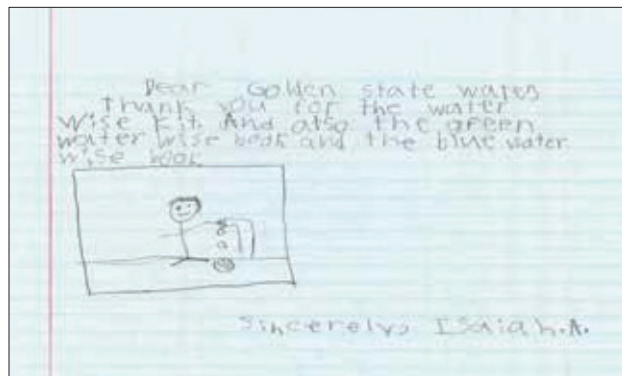 Dear Golden state water,
Thank you for the water
wise kit. And also the green
water wise book and the blue water
wise book
Sincerely, Isaiah.A.